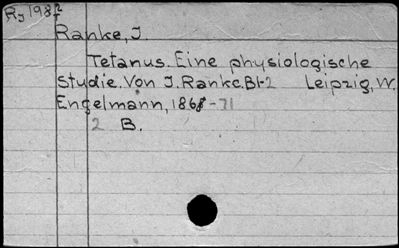 Ry 198 2/1
Ranke, J.
Tetanus. Eine physiologische
Studie. Von J. Ranke. Bd 1-2 Leipzig, W.
Engelmann, 1868-71
2 B.